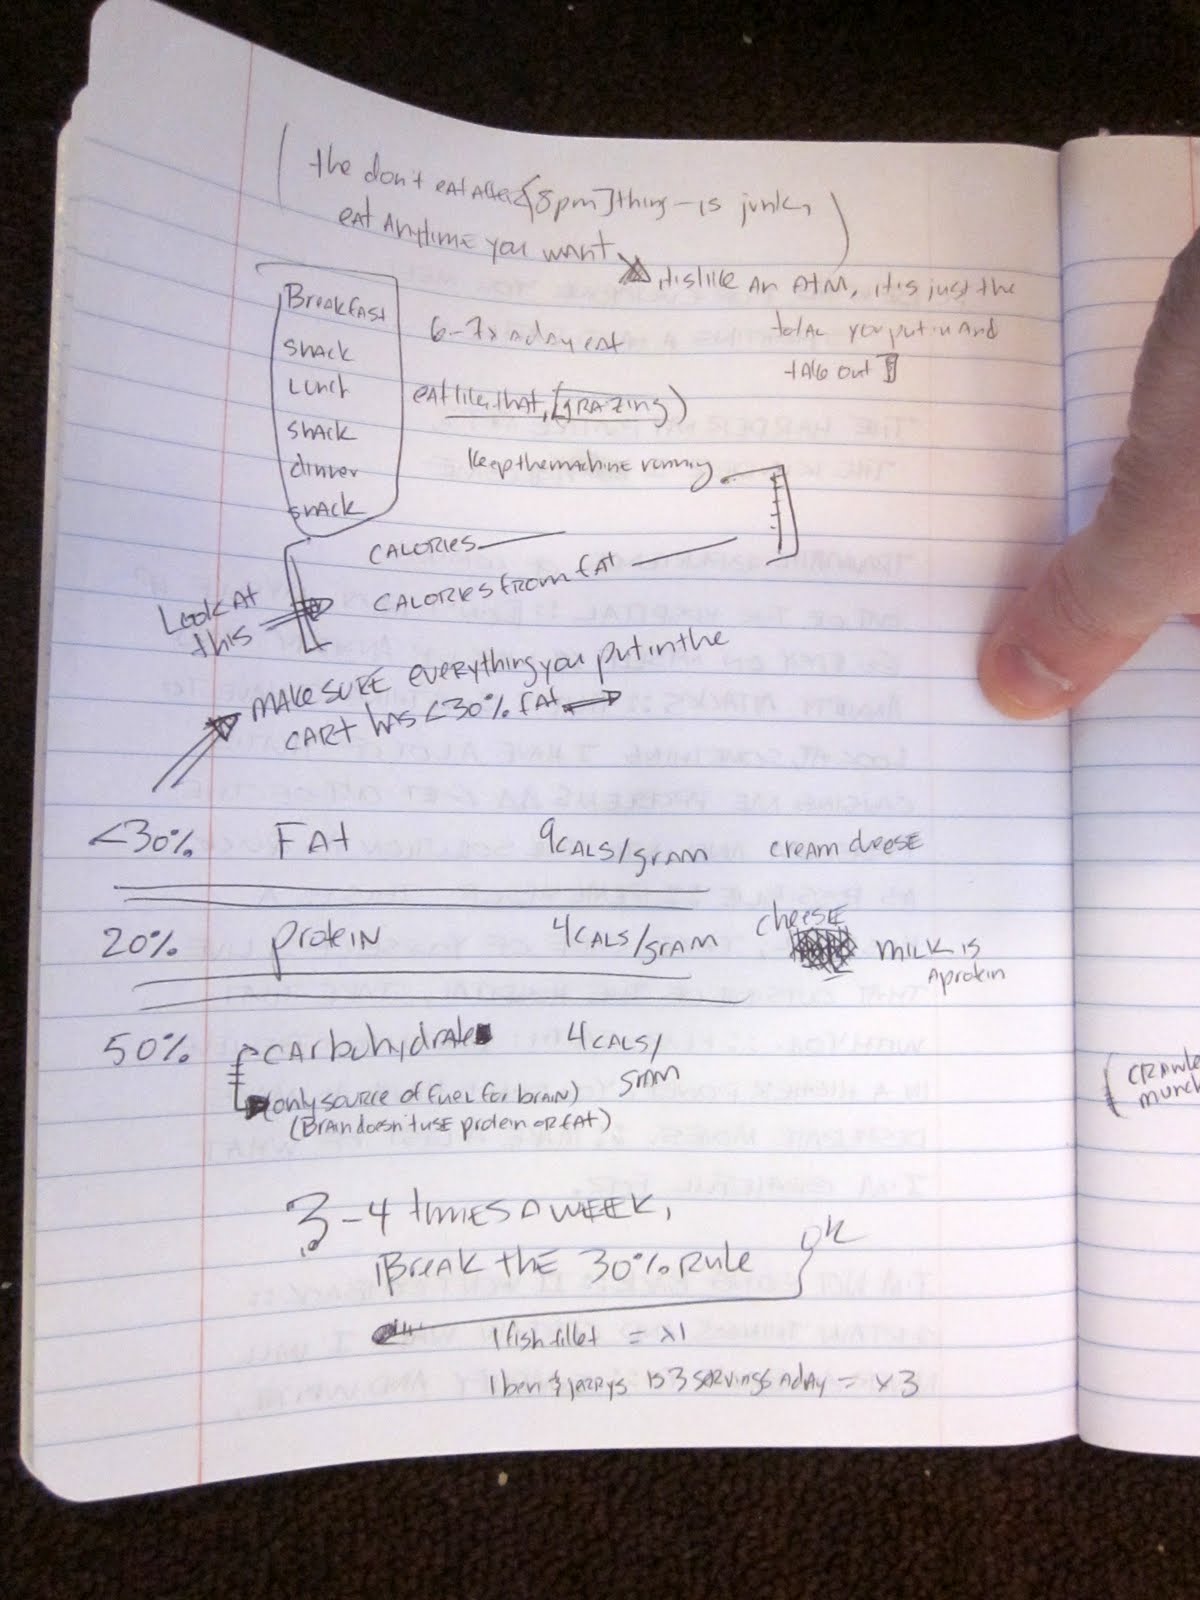 (the don't eat after [8pm] thing - is junk,
eat anytime you want)
it is like an ATM, it is just the
total you put in and
take out]
Breakfast
snack
Lunch
snack
dinner
snack
6-7x a day eat
eat like that, (grazing)
keep the machine running
CALORIES
CALORIES from fat
Look At
this
make sure everything you put in the
cart has <30% fat
<30% FAt 9 CALS/gram cream cheese
20% protein 4 CALS/gram cheese milk is
a protein
50% carbohydrate 4 CALS/
gram
(only source of fuel for brain)
(Brain doesn't use protein or fat)
3-4 times a week,
Break the 30% Rule ok
1 fish fillet = x1
1 ben & jerrys is 3 servings a day = x3
CRAWL
munch